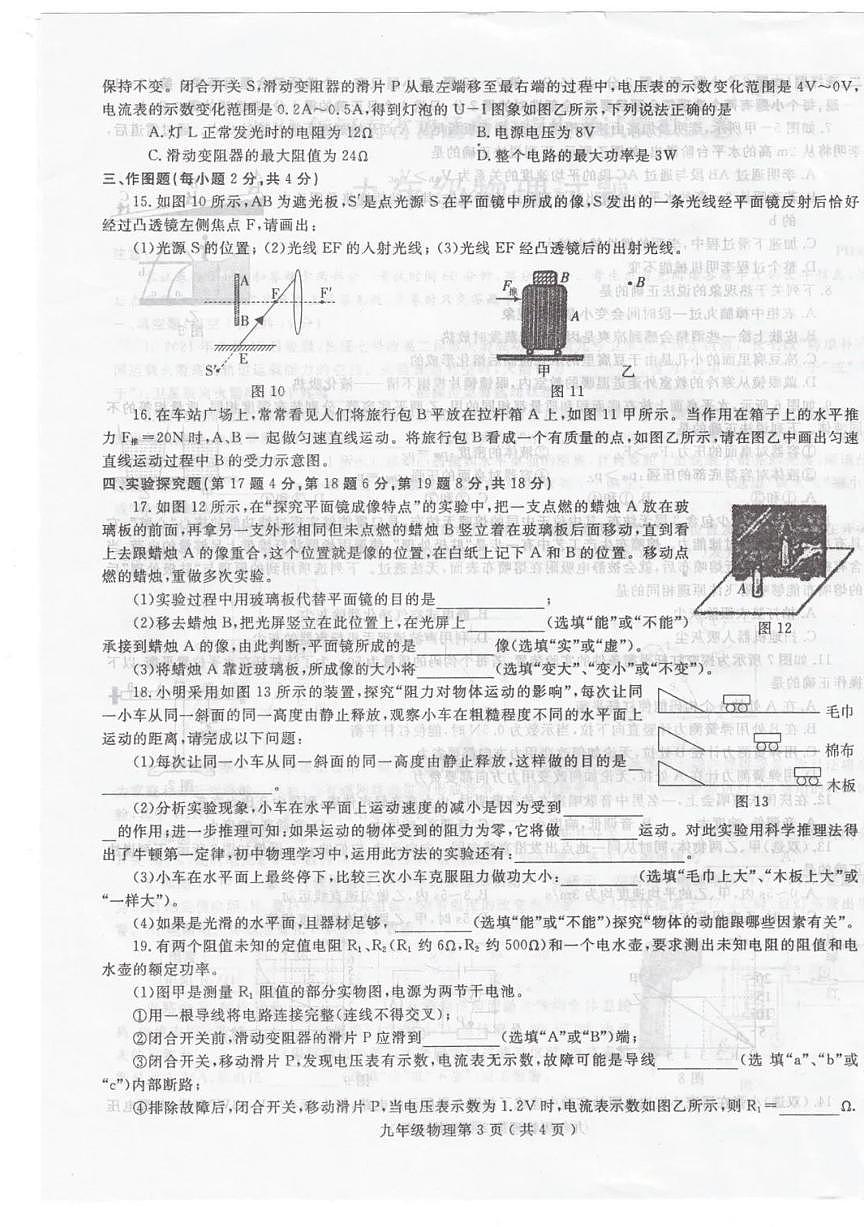 保持不变。闭合开关 S,滑动变阻器的滑片 P 从最左端移至最右端的过程中,电压表的示数变化范围是 4V～0V,
电流表的示数变化范围是 0.2A～0.5A,得到灯泡的 U－I 图象如图乙所示,下列说法正确的是
A.灯 L 正常发光时的电阻为 12Ω B.电源电压为 8V
C.滑动变阻器的最大阻值为 24Ω D.整个电路的最大功率是 3W
三、作图题(每小题 2 分,共 4 分)
15.如图 10 所示,AB 为遮光板,S′是点光源 S 在平面镜中所成的像,S 发出的一条光线经平面镜反射后恰好
经过凸透镜左侧焦点 F,请画出:
(1)光源 S 的位置;(2)光线 EF 的入射光线;(3)光线 EF 经凸透镜后的出射光线。
A
F F′
B
E
S′
图 10
F推
B
A
甲
B
乙
图 11
16.在车站广场上,常常看见人们将旅行包 B 平放在拉杆箱 A 上,如图 11 甲所示。当作用在箱子上的水平推
力 F推＝20N 时,A、B 一起做匀速直线运动。将旅行包 B 看成一个有质量的点,如图乙所示,请在图乙中画出匀速
直线运动过程中 B 的受力示意图。
四、实验探究题(第 17 题 4 分,第 18 题 6 分,第 19 题 8 分,共 18 分)
17.如图 12 所示,在“探究平面镜成像特点”的实验中,把一支点燃的蜡烛 A 放在玻
璃板的前面,再拿另一支外形相同但未点燃的蜡烛 B 竖立着在玻璃板后面移动,直到看
上去跟蜡烛 A 的像重合,这个位置就是像的位置,在白纸上记下 A 和 B 的位置。移动点
燃的蜡烛,重做多次实验。
(1)实验过程中用玻璃板代替平面镜的目的是________;
(2)移去蜡烛 B,把光屏竖立在此位置上,在光屏上________(选填“能”或“不能”)
承接到蜡烛 A 的像,由此判断,平面镜所成的是________像(选填“实”或“虚”)。
(3)将蜡烛 A 靠近玻璃板,所成像的大小将________(选填“变大”、“变小”或“不变”)。
A
图 12
18.小明采用如图 13 所示的装置,探究“阻力对物体运动的影响”,每次让同
一小车从同一斜面的同一高度由静止释放,观察小车在粗糙程度不同的水平面上
运动的距离,请完成以下问题:
(1)每次让同一小车从同一斜面的同一高度由静止释放,这样做的目的是__
________________。
毛巾
棉布
木板
图 13
(2)分析实验现象,小车在水平面上运动速度的减小是因为受到________
__的作用;进一步推理可知:如果运动的物体受到的阻力为零,它将做________运动。对此实验用科学推理法得
出了牛顿第一定律,初中物理学习中,运用此方法的实验还有:________________。
(3)小车在水平面上最终停下,比较三次小车克服阻力做功大小:________(选填“毛巾上大”、“木板上大”或
“一样大”)。
(4)如果是光滑的水平面,且器材足够,________(选填“能”或“不能”)探究“物体的动能跟哪些因素有关”。
19.有两个阻值未知的定值电阻 R₁、R₂(R₁ 约 6Ω,R₂ 约 500Ω)和一个电水壶,要求测出未知电阻的阻值和电
水壶的额定功率。
(1)图甲是测量 R₁ 阻值的部分实物图,电源为两节干电池。
①用一根导线将电路连接完整(连线不得交叉);
②闭合开关前,滑动变阻器的滑片 P 应滑到________(选填“A”或“B”)端;
③闭合开关,移动滑片 P,发现电压表有示数,电流表无示数,故障可能是导线________(选填“a”、“b”或
“c”)内部断路;
④排除故障后,闭合开关,移动滑片 P,当电压表示数为 1.2V 时,电流表示数如图乙所示,则 R₁＝________Ω.
九年级物理第 3 页(共 4 页)